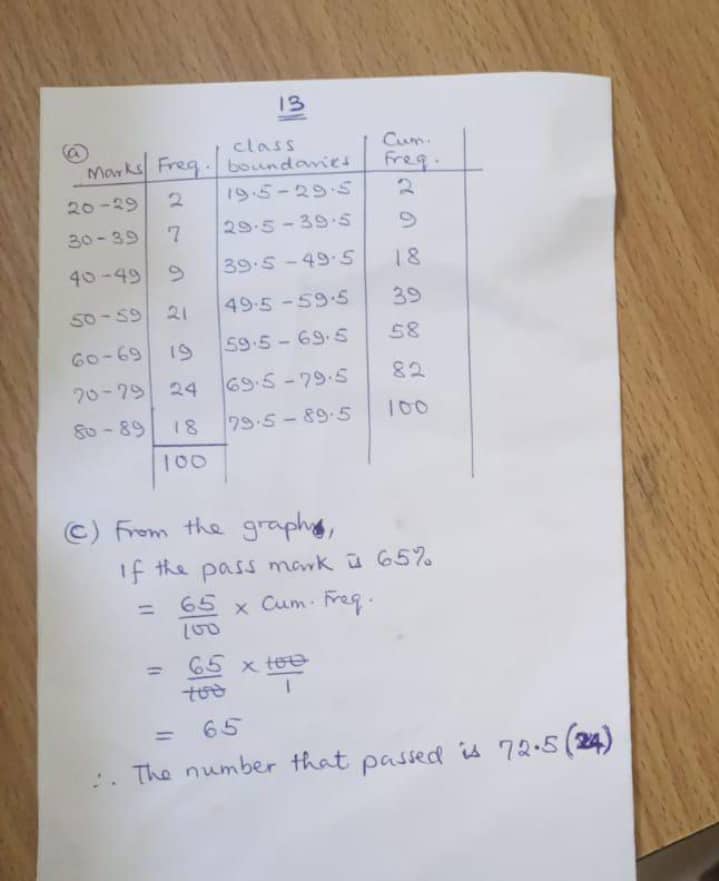 13
(a)
Marks Freq. class boundaries Cum. Freq.
20-29 2 19.5-29.5 2
30-39 7 29.5-39.5 9
40-49 9 39.5-49.5 18
50-59 21 49.5-59.5 39
60-69 19 59.5-69.5 58
70-79 24 69.5-79.5 82
80-89 18 79.5-89.5 100
100
(c) From the graph,
If the pass mark is 65%
= 65/100 x Cum. Freq.
= 65/100 x 100/1
= 65
∴ The number that passed is 72.5 (24)